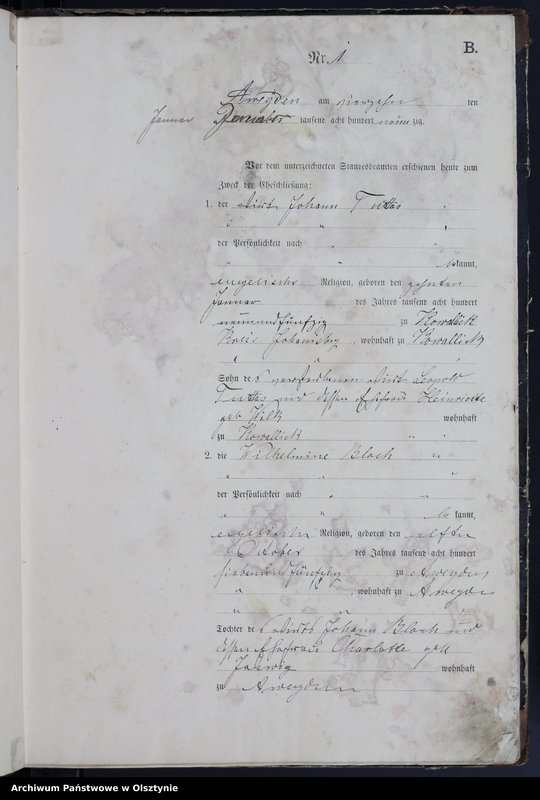 B.
Nr. 1
Aweyden am vierzehn ten
Januar tausend acht hundert neunzig.
Vor dem unterzeichneten Standesbeamten erschienen heute zum
Zweck der Eheschließung:
1. der Wirt Johann
der Persönlichkeit nach
kannt,
evangelischer Religion, geboren den zehnten
Januar des Jahres tausend acht hundert
neunundfünfzig zu Kowallick
Kreis Johannisburg, wohnhaft zu Kowallick
Sohn des verstorbenen Wirt Leopold
und dessen Ehefrau Heinriette
geb Wilk wohnhaft
zu Kowallick
2. die Wilhelmine Bloch
der Persönlichkeit nach
kannt,
Religion, geboren den elften
October des Jahres tausend acht hundert
siebenundfünfzig zu Aweyden
, wohnhaft zu Aweyden
Tochter des Wirts Johann Bloch und
dessen Ehefrau Charlotte geb
wohnhaft
zu Aweyden
Archiwum Państwowe w Olsztynie